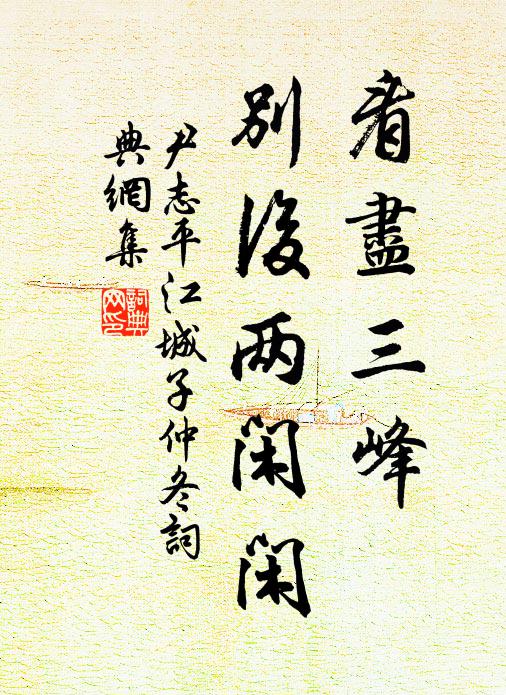 看盡三峰
別後两閑閑
尹志平江城子仲冬詞
典網集
詞典
网印